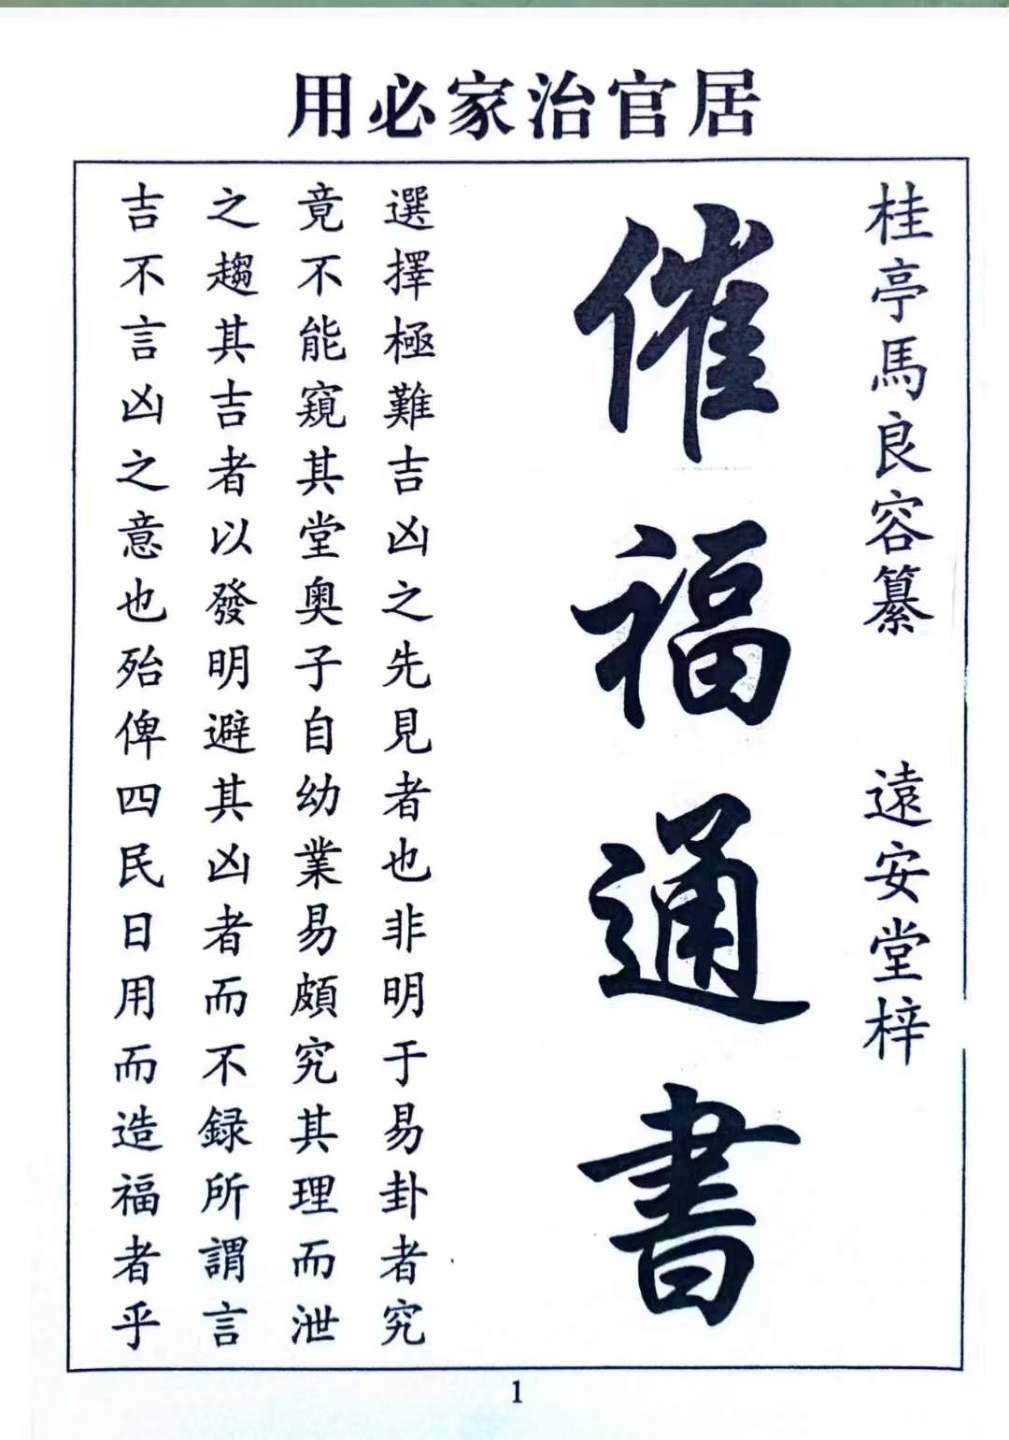 居官治家必用
桂亭馬良容纂　遠安堂梓
催福通書
選擇極難吉凶之先見者也非明于易卦者究
竟不能窺其堂奧子自幼業易頗究其理而泄
之趨其吉者以發明避其凶者而不録所謂言
吉不言凶之意也殆俾四民日用而造福者乎
1